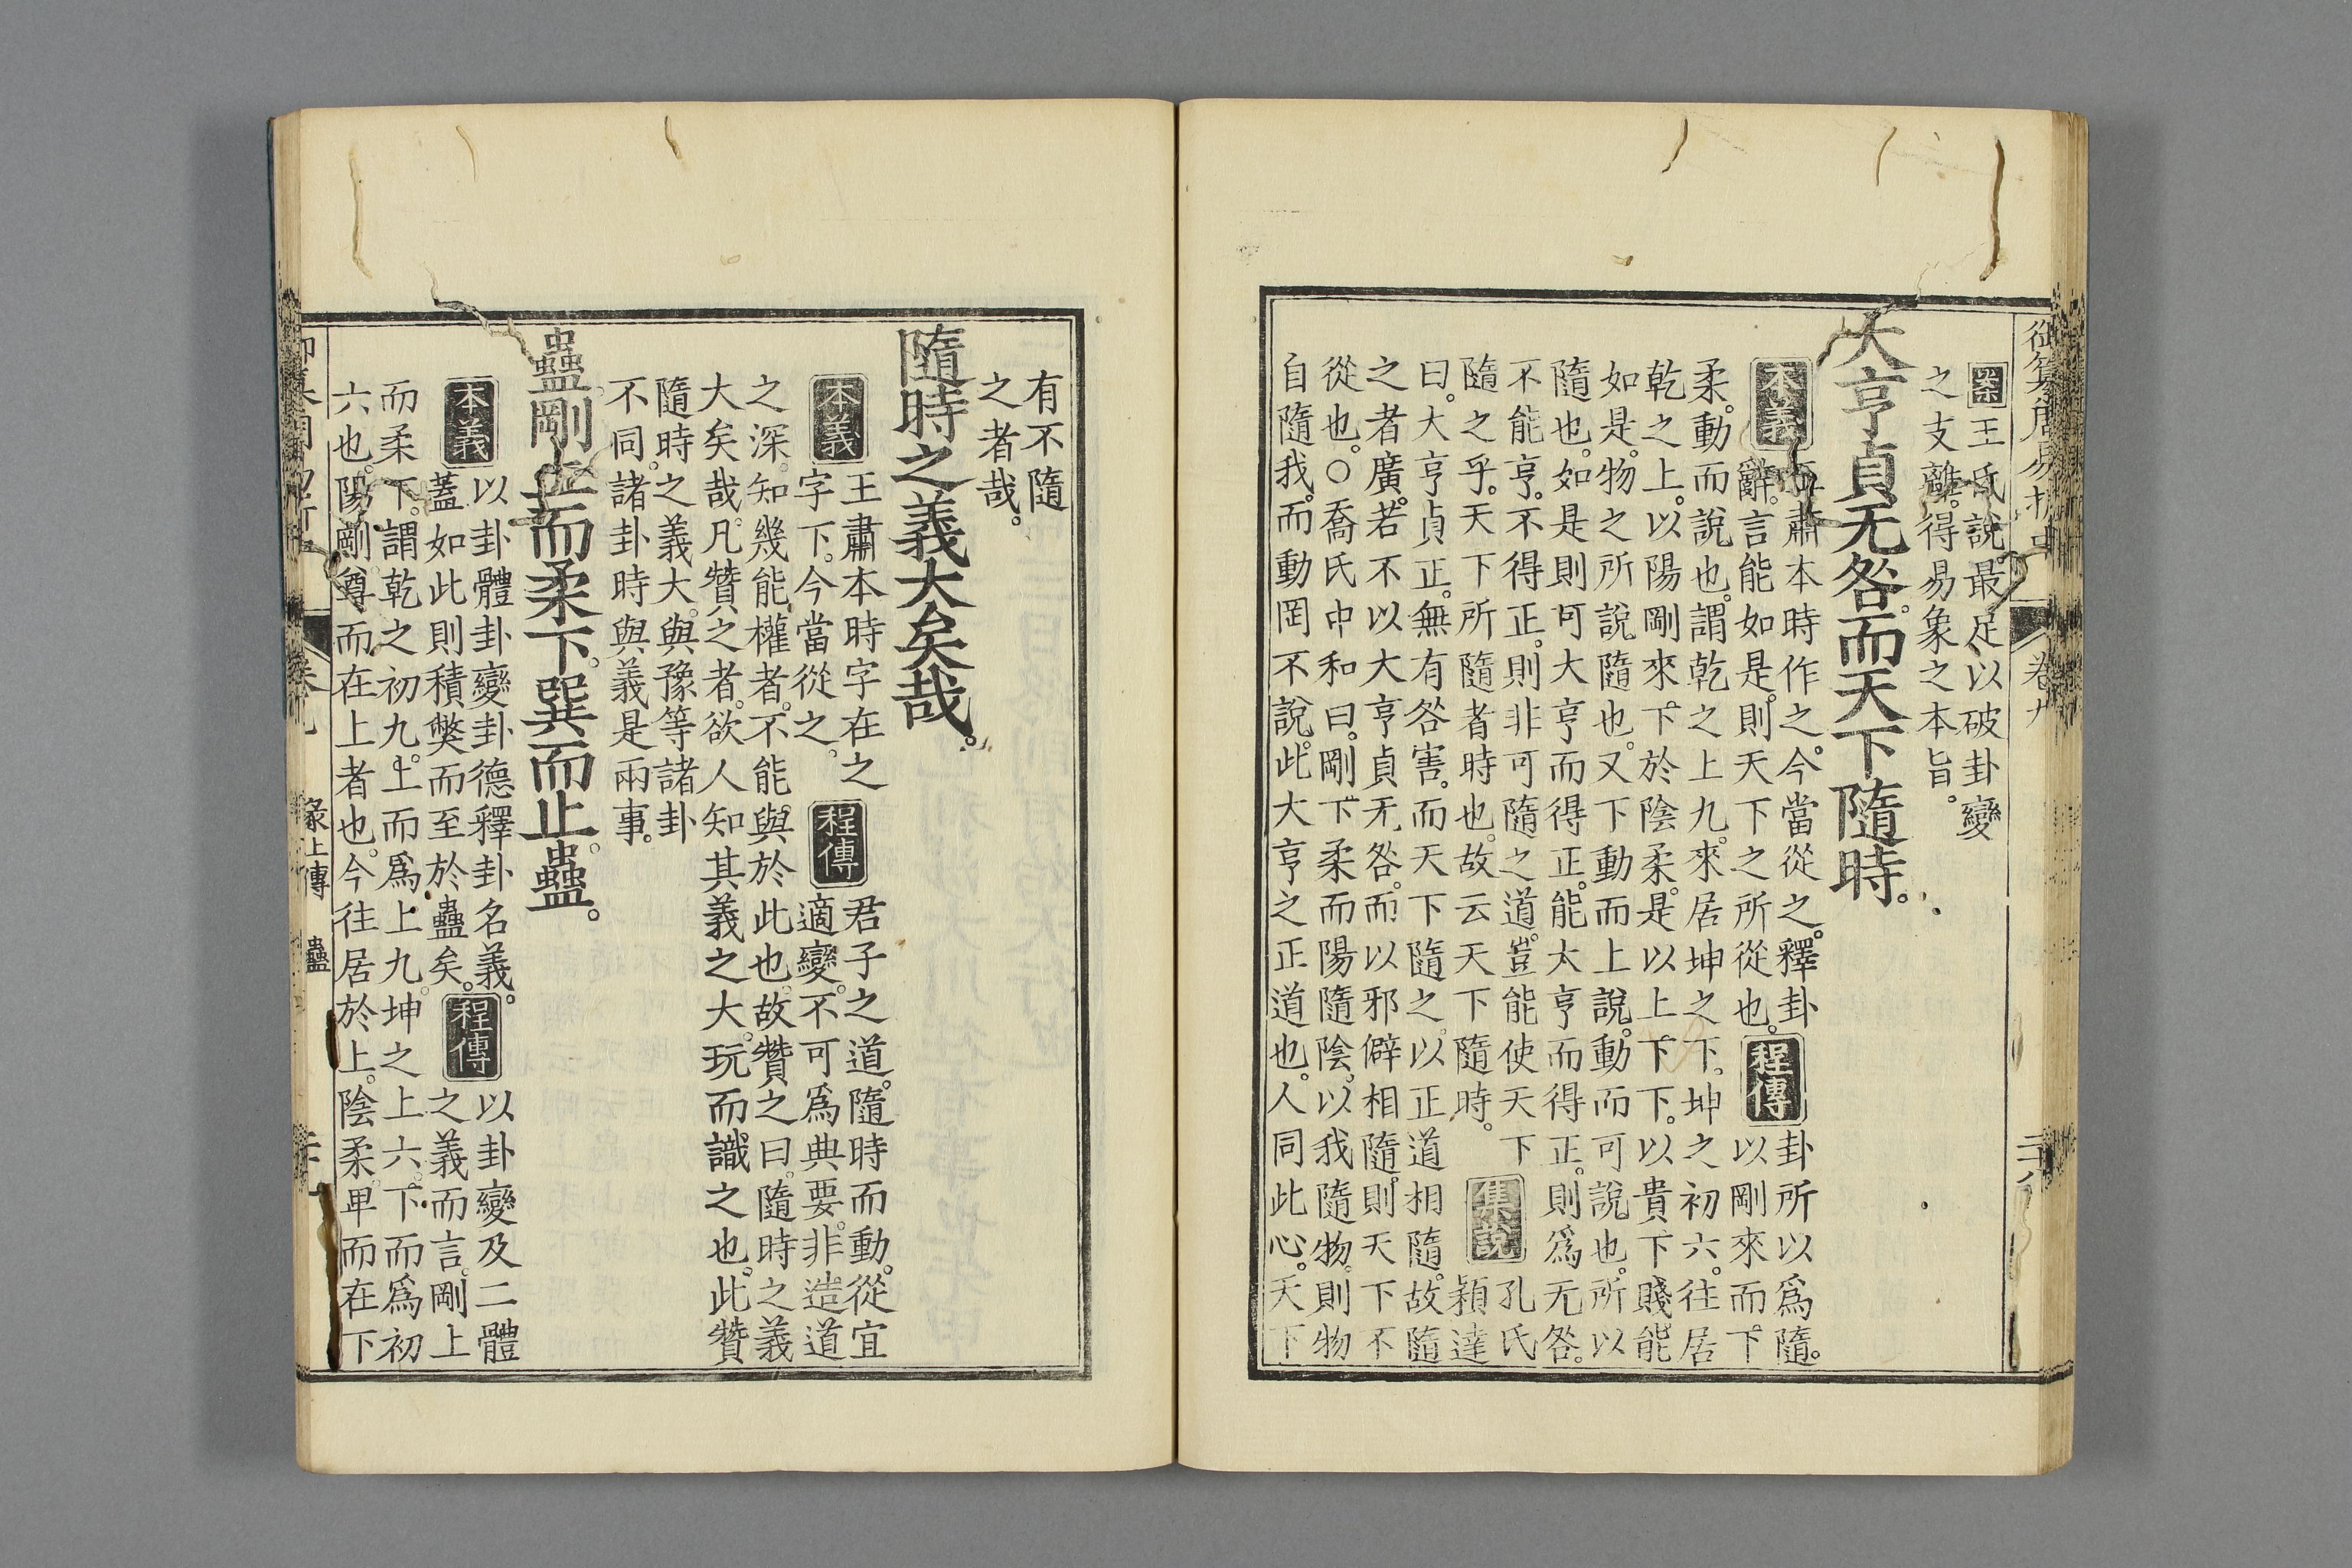 御纂周易折中 卷九 二十八
案王氏說最足以破卦變
之支離。得易象之本旨。
大亨貞无咎。而天下隨時。
本義
王肅本時作之。今當從之。釋卦
辭。言能如是。則天下之所從也。
程傳
卦所以爲隨。
以剛來而下
柔。動而說也。謂乾之上九。來居坤之下。坤之初六。往居
乾之上。以陽剛來下於陰柔。是以上下下。以貴下賤。能
如是。物之所說隨也。又下動而上說。動而可說也。所以
隨也。如是則可大亨而得正。能大亨而得正。則爲无咎。
不能亨。不得正。則非可隨之道。豈能使天下
隨之乎。天下所隨者時也。故云天下隨時。
集說
孔氏
穎達
曰。大亨貞正。無有咎害。而天下隨之。以正道相隨。故隨
之者廣。若不以大亨貞无咎。而以邪僻相隨。則天下不
從也。○喬氏中和曰。剛下柔而陽隨陰。以我隨物。則物
自隨我。而動罔不說。此大亨之正道也。人同此心。天下
有不隨
之者哉。
隨時之義大矣哉。
本義
王肅本時字在之
字下。今當從之。
程傳
君子之道。隨時而動。從宜
適變。不可爲典要。非造道
之深。知幾能權者。不能與於此也。故贊之曰。隨時之義
大矣哉。凡贊之者。欲人知其義之大。玩而識之也。此贊
隨時之義大。與豫等諸卦
不同。諸卦時與義是兩事。
蠱剛上而柔下。巽而止。蠱。
本義
以卦體卦變卦德釋卦名義。
蓋如此則積獘而至於蠱矣。
程傳
以卦變及二體
之義而言。剛上
而柔下。謂乾之初九。上而爲上九。坤之上六。下而爲初
六也。陽剛尊而在上者也。今往居於上。陰柔卑而在下
卷九 彖上傳 蠱